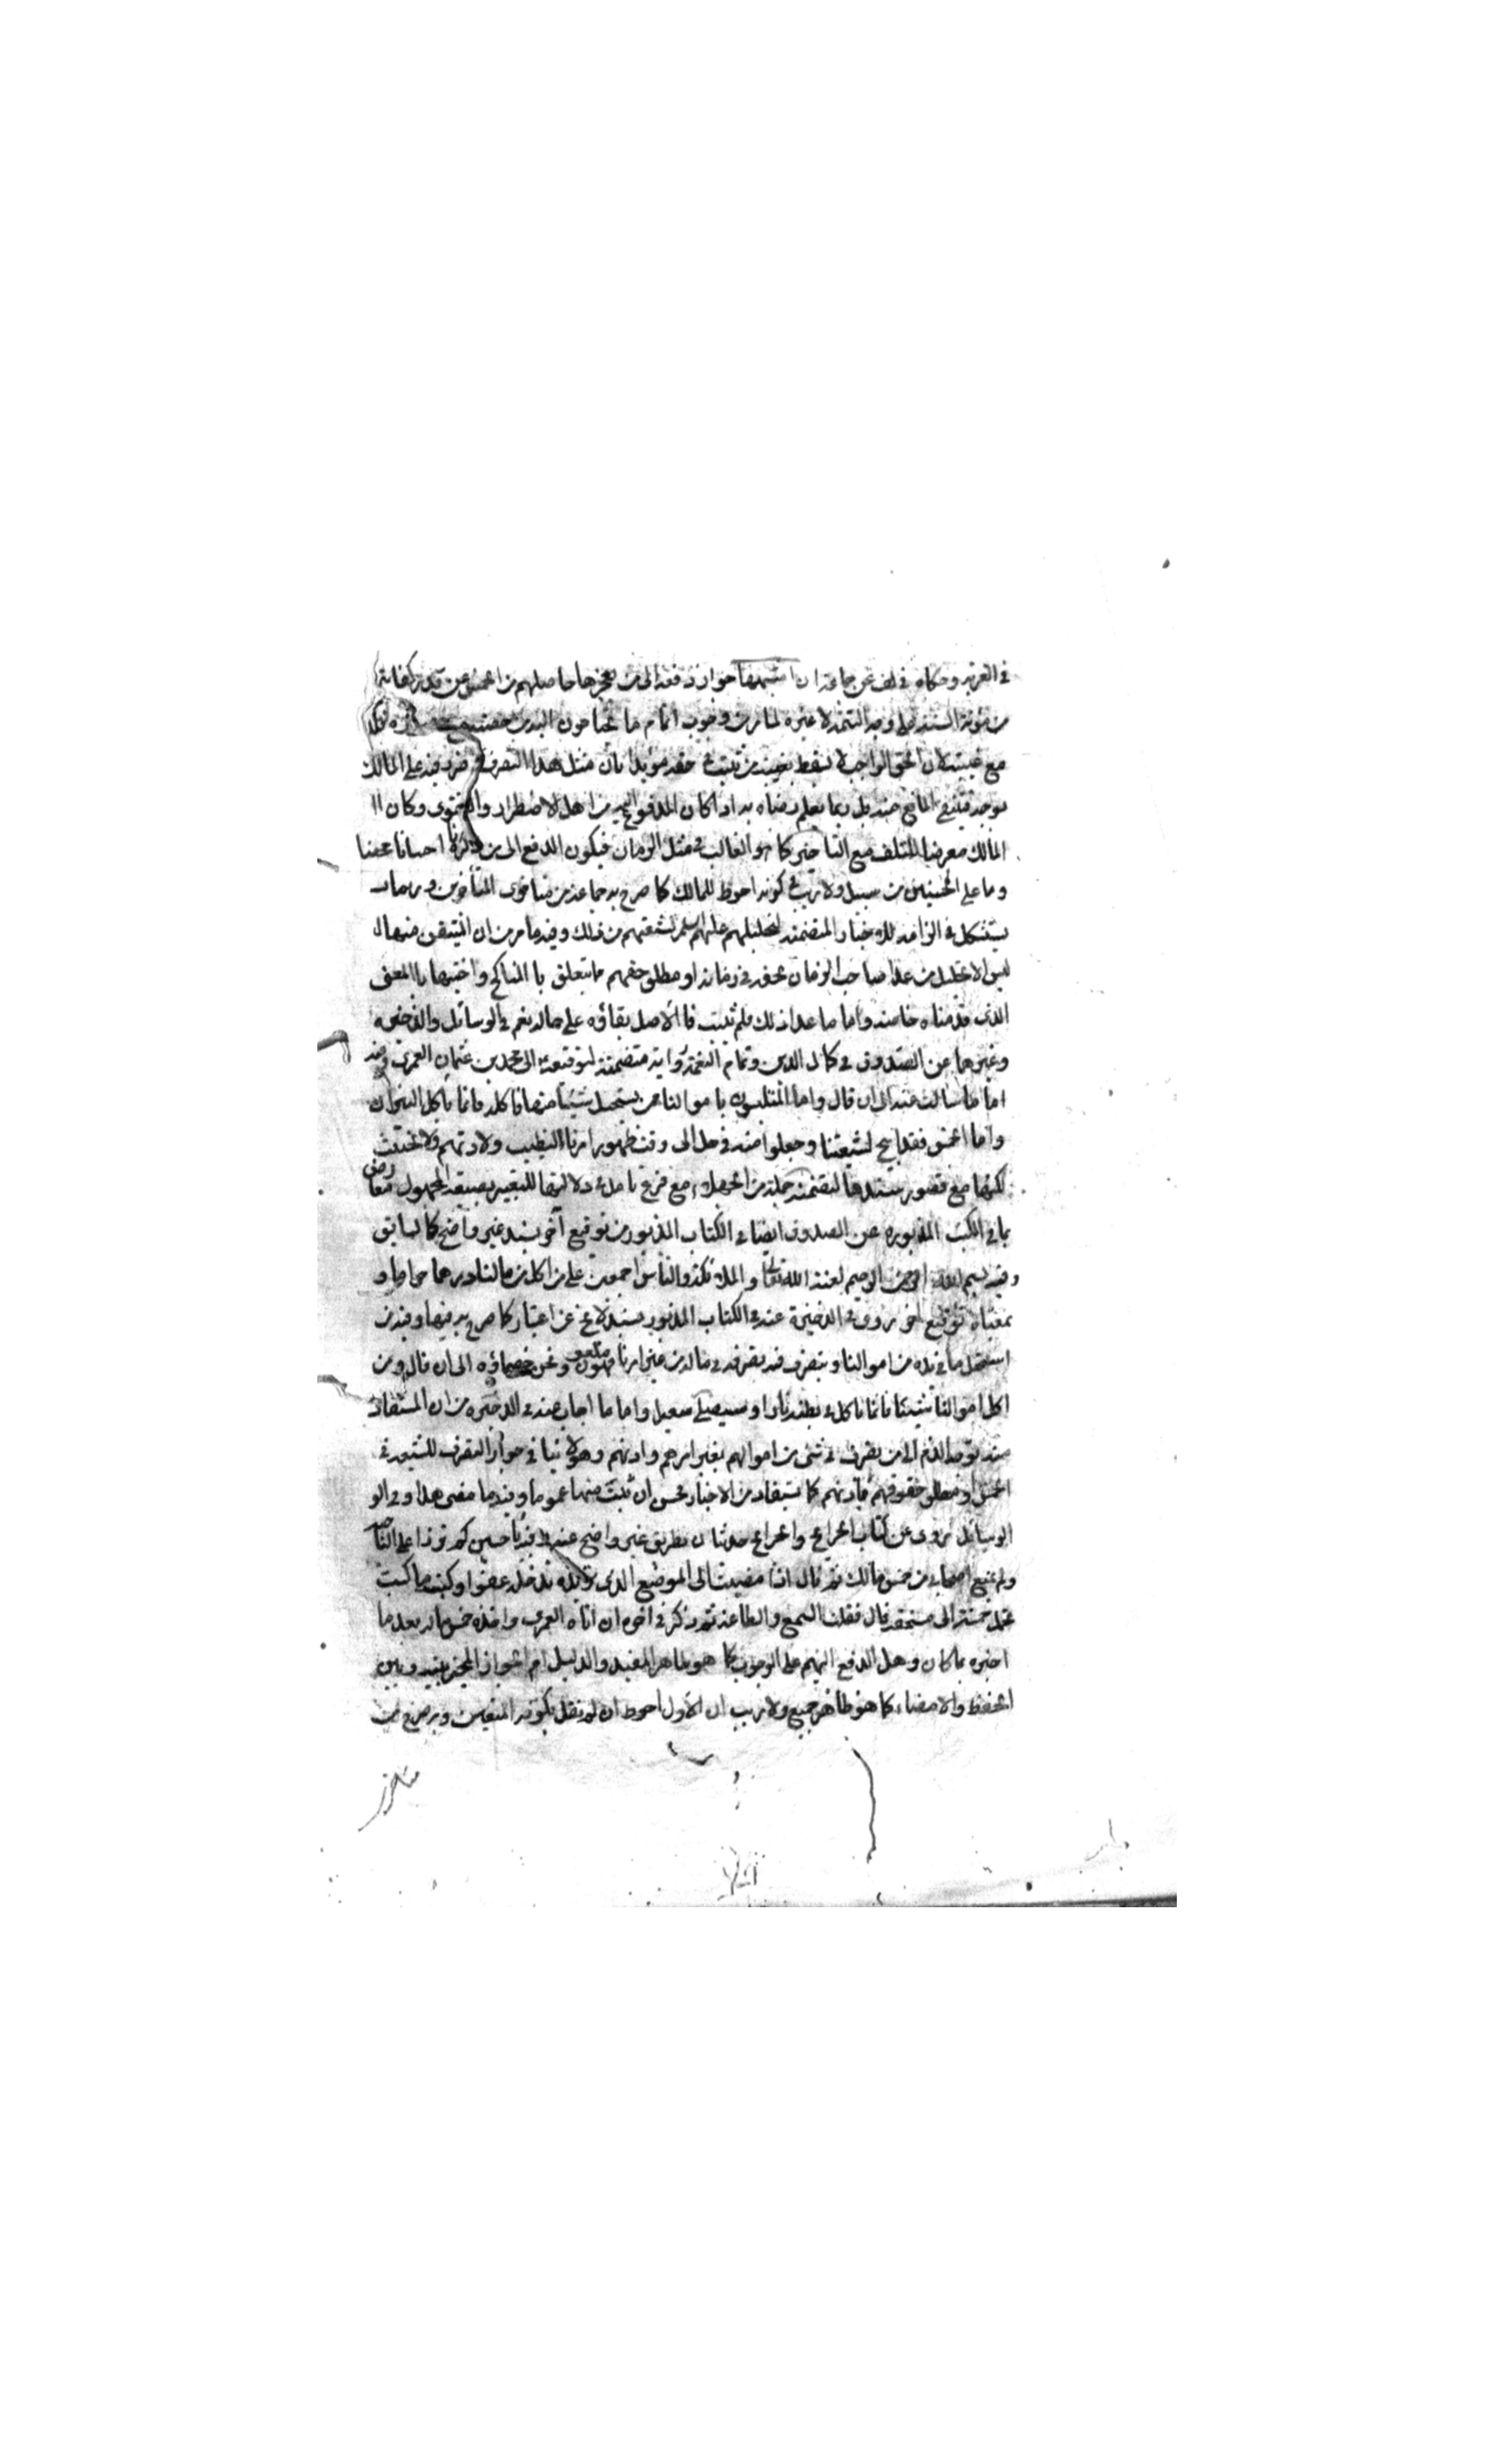 في الغرية وحكاه في لف عن جماعة ان اشبهها جواز دفعه الى من يعجز حاصلهم من الخمس عن قدر كفايته
من مؤنة السنة على وجه التتمة لا غيره لما مر من وجوب اتمام ما يحتاجون اليه من حصته مع
مع غيبته لان الحق الواجب لا يسقط بغيبة من يثبت في حقه مؤيدا بان مثل هذا التصرف لا ضرر فيه على المالك
بوجه فينتفي المانع منه بل ربما يعلم رضاه به اذا كان المدفوع اليه من اهل الاضطرار والتقوى وكان اا
المالك معرضا للتلف مع التأخير كما هو الغالب في مثل الزمان فيكون الدفع الى من ذكرنا احسانا محضا
وما على المحسنين من سبيل ولا ريب في كونه احوط للمالك كما صرح به جماعة من متأخري المتأخرين وربما
يستشكل في الزائد للاخبار المتضمنة لتحليلهم عليهم السلم لشيعتهم من ذلك وفيه ما مر من ان المتيقن منها ال
ليس الا تحليل من عدا صاحب الزمان بحقه في زمانه او مطلق حقهم مما يتعلق با المناكح واختيها با المعنى
الذي قدمناه خاصة واما ما عدا ذلك فلم يثبت فا الاصل بقاؤه على حاله نعم في الوسائل والذخيرة
وغيرهما عن الصدوق في كمال الدين وتمام النعمة رواية متضمنة لتوقيعه الى محمد بن عثمان العمري وفيه
اما ما سالت عنه الى ان قال واما المتلبسون با موالنا فمن يستحل شيئا منها فاكله فانما ياكل النيران
واما الخمس فقد ابيح لشيعتنا وجعلوا منه في حل الى وقت ظهور امرنا لتطيب ولادتهم ولا تخبث
لكنها مع قصور سندها لتضمنه جملة من الجهلاء مع فرع تامل في دلالتها للتعبير بصيغة المجهول معارض
بما في الكتب المذبوره عن الصدوق ايضا في الكتاب المذبور من توقيع آخر بسند غير واضح كالسابق
وفيه بسم الله الرحمن الرحيم لعنة الله تعالى والملائكة والناس اجمعين على من اكل من مالنا درهما حراما و
بمعناه توقيع آخر مروى في الذخيرة عنه في الكتاب المذبور بسند لا يخ عن اعتبار كما صرح به فيها وفيه من
استحل ما في يده من اموالنا ويتصرف فيه تصرفه في ماله من غير امرنا فهو ملعون ونحن خصماؤه الى ان قال ومن
اكل اموالنا شيئا فانما ياكل في بطنه نارا وسيصلى سعيرا واما ما اجاب عنه في الذخيره من ان المستفاد
منه توجه الذم الى من يتصرف في شئ من اموالهم بغير امرهم واذنهم وهو لا ينافي جواز التصرف للشيعة في
الخمس او مطلق حقوقهم باذنهم كما يستفاد من الاخبار فحسن ان ثبت منها عموما وفيه ما مضى هذا وفي الو
الوسائل مروى عن كتاب الخرايج والجرايح حديثا بطريق غير واضح عنه وفيه يا حسين كم تزرأ على الناحية
ولم تمنع اصحابي من خمس مالك ثم قال اذا مضيت الى الموضع الذي تريده تدخله عفوا وكسبت ما كسبت
تحمل خمسه الى مستحقه قال فقلت السمع والطاعة ثم ذكر في آخره ان اتاه العمري واخذ خمس ماله بعد ما
اخبره بما كان وهل الدفع اليهم على الوجوب كما هو ظاهر المفيد والدليل ام الجواز المخير بينه وبين
الحفظ والايصاء كما هو ظاهر جمع ولا ريب ان الاول احوط ان لم نقل بكونه المتعين وبر صرح